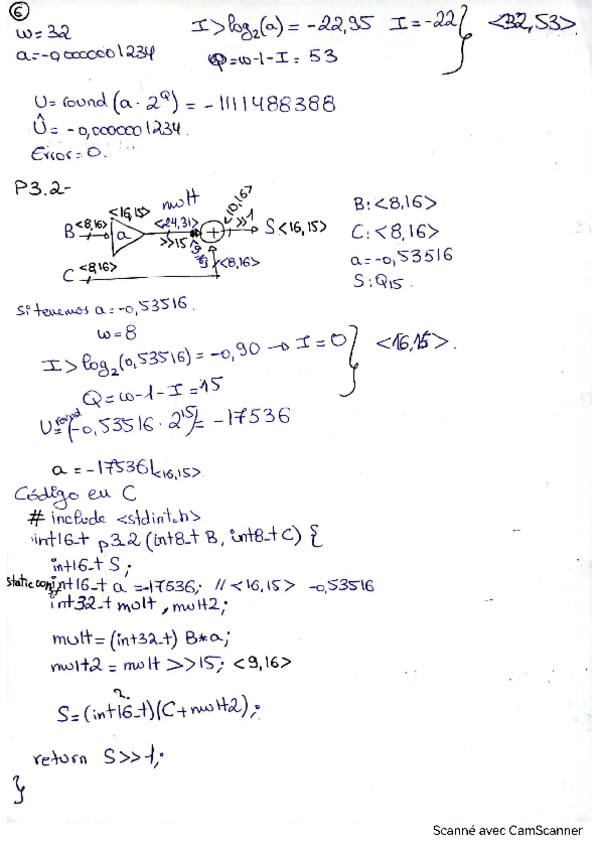 ⑥
w=32
a=-0,0000001234
I>log₂(a) = -22,95 I=-22
Q=w-1-I= 53
<32,53>
U=round(a·2^Q) = -1111488388
Û= -0,0000001234.
Error=0.
P3.2-
B <8,16> <16,15> a mult <24,31> >>15 <9,16> + <10,16> >>1 S <16,15>
C <8,16> <8,16>
B:<8,16>
C:<8,16>
a=-0,53516
S:Q15.
Si tenemos a=-0,53516.
w=8
I>log₂(0,53516)=-0,90 → I=0
Q=w-1-I=15
<16,15>.
U=round(-0,53516·2^15)= -17536
a = -17536|<16,15>
Código en C
# include <stdint.h>
int16_t p3.2 (int8_t B, int8_t C) {
int16_t S;
static const int16_t a =-17536; // <16,15> -0,53516
int32_t mult, mult2;
mult= (int32_t) B*a;
mult2 = mult >>15; <9,16>
?
S=(int16_t)(C+mult2);
return S>>1;
}
Scanné avec CamScanner